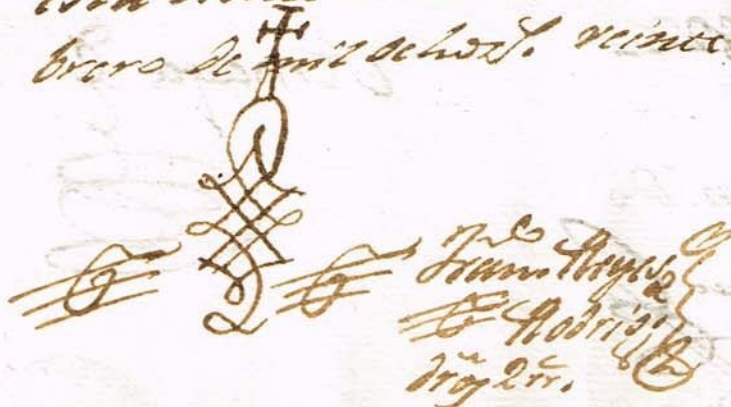 brero de mil ochos. veinte
Fran.co Reyes
Rodrig.
dros 2 rr.